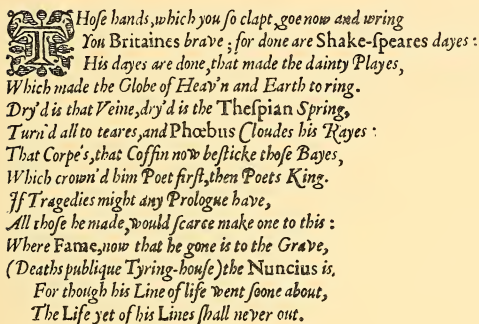 THoſe hands, which you ſo clapt, goe now and wring
You Britaines brave; for done are Shake-ſpeares dayes:
His dayes are done, that made the dainty Playes,
Which made the Globe of Heav'n and Earth to ring.
Dry'd is that Veine, dry'd is the Theſpian Spring,
Turn'd all to teares, and Phœbus Cloudes his Rayes:
That Corpe's, that Coffin now beſticke thoſe Bayes,
Which crown'd him Poet firſt, then Poets King.
If Tragedies might any Prologue have,
All thoſe he made, would ſcarce make one to this:
Where Fame, now that he gone is to the Grave,
(Deaths publique Tyring-houſe) the Nuncius is.
For though his Line of life went ſoone about,
The Life yet of his Lines ſhall never out.